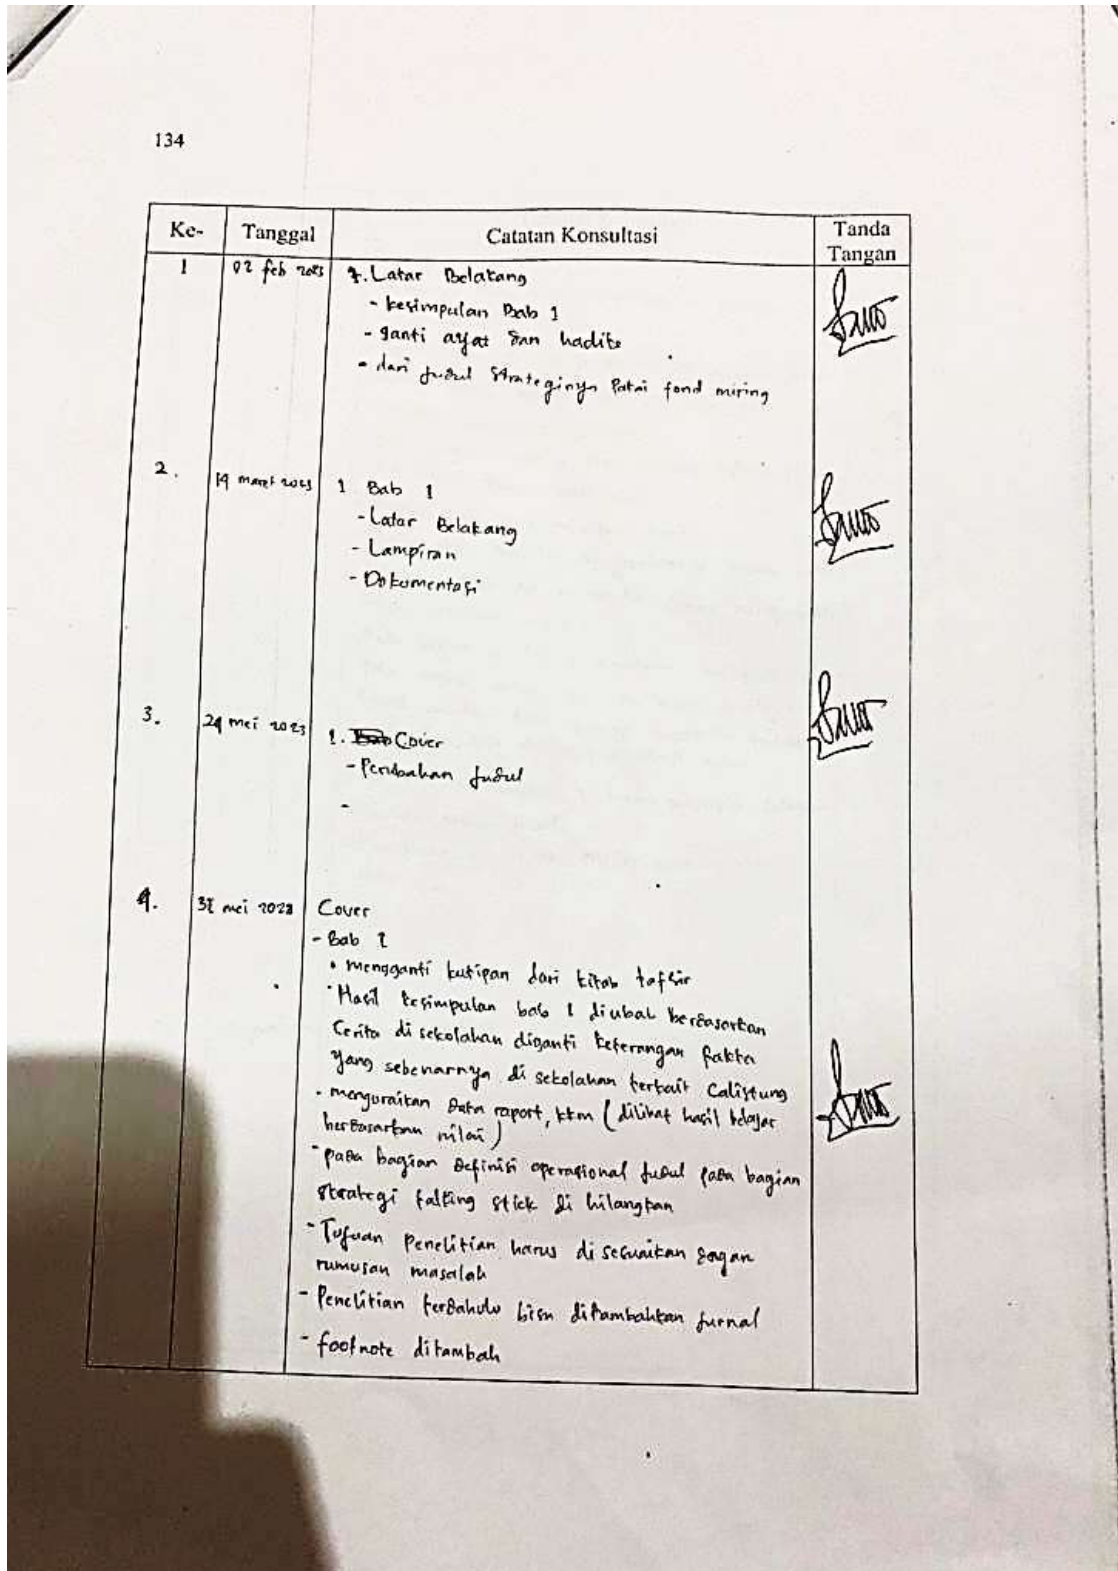 134
Ke- Tanggal Catatan Konsultasi Tanda Tangan
1 02 feb 2023 1. Latar Belakang
- kesimpulan Bab 1
- ganti ayat dan hadits
- dari judul strateginya pakai fond miring
2. 19 maret 2023 1 Bab 1
- Latar Belakang
- Lampiran
- Dokumentasi
3. 24 mei 2023 1. Cover
- Perubahan judul
-
4. 31 mei 2023 Cover
- Bab 1
• mengganti kutipan dari kitab tafsir
• Hasil kesimpulan bab 1 diubah berdasarkan
Cerita di sekolahan diganti keterangan fakta
yang sebenarnya di sekolahan terkait Calistung
• menguraikan Data raport, kkm (dilihat hasil belajar
berdasarkan nilai)
- pada bagian Definisi operasional judul pada bagian
strategi talking stick di hilangkan
- Tujuan Penelitian harus di sesuaikan dngan
rumusan masalah
- Penelitian terdahulu bisa ditambahkan jurnal
- footnote ditambah